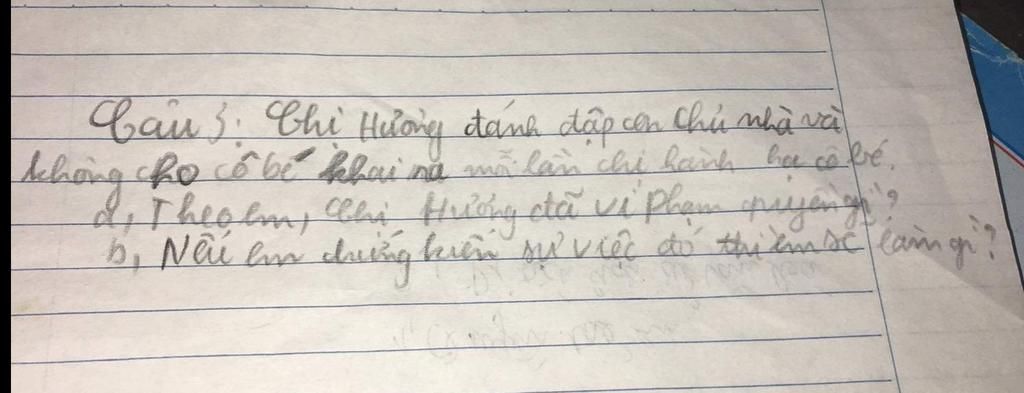 Câu 3: Chị Hường đánh đập con chủ nhà và
không cho cô bé khai ra mỗi lần chị hành hạ cô bé.
a, Theo em, chị Hường đã vi phạm quyền gì?
b, Nếu em chứng kiến sự việc đó thì em sẽ làm gì?